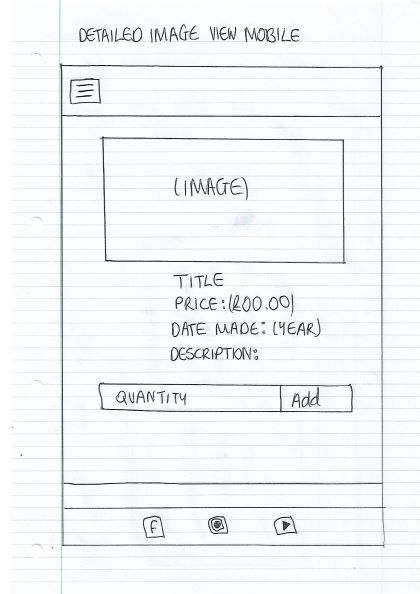 DETAILED IMAGE VIEW MOBILE
(IMAGE)
TITLE
PRICE:(R00.00)
DATE MADE: (YEAR)
DESCRIPTION:
QUANTITY Add
f